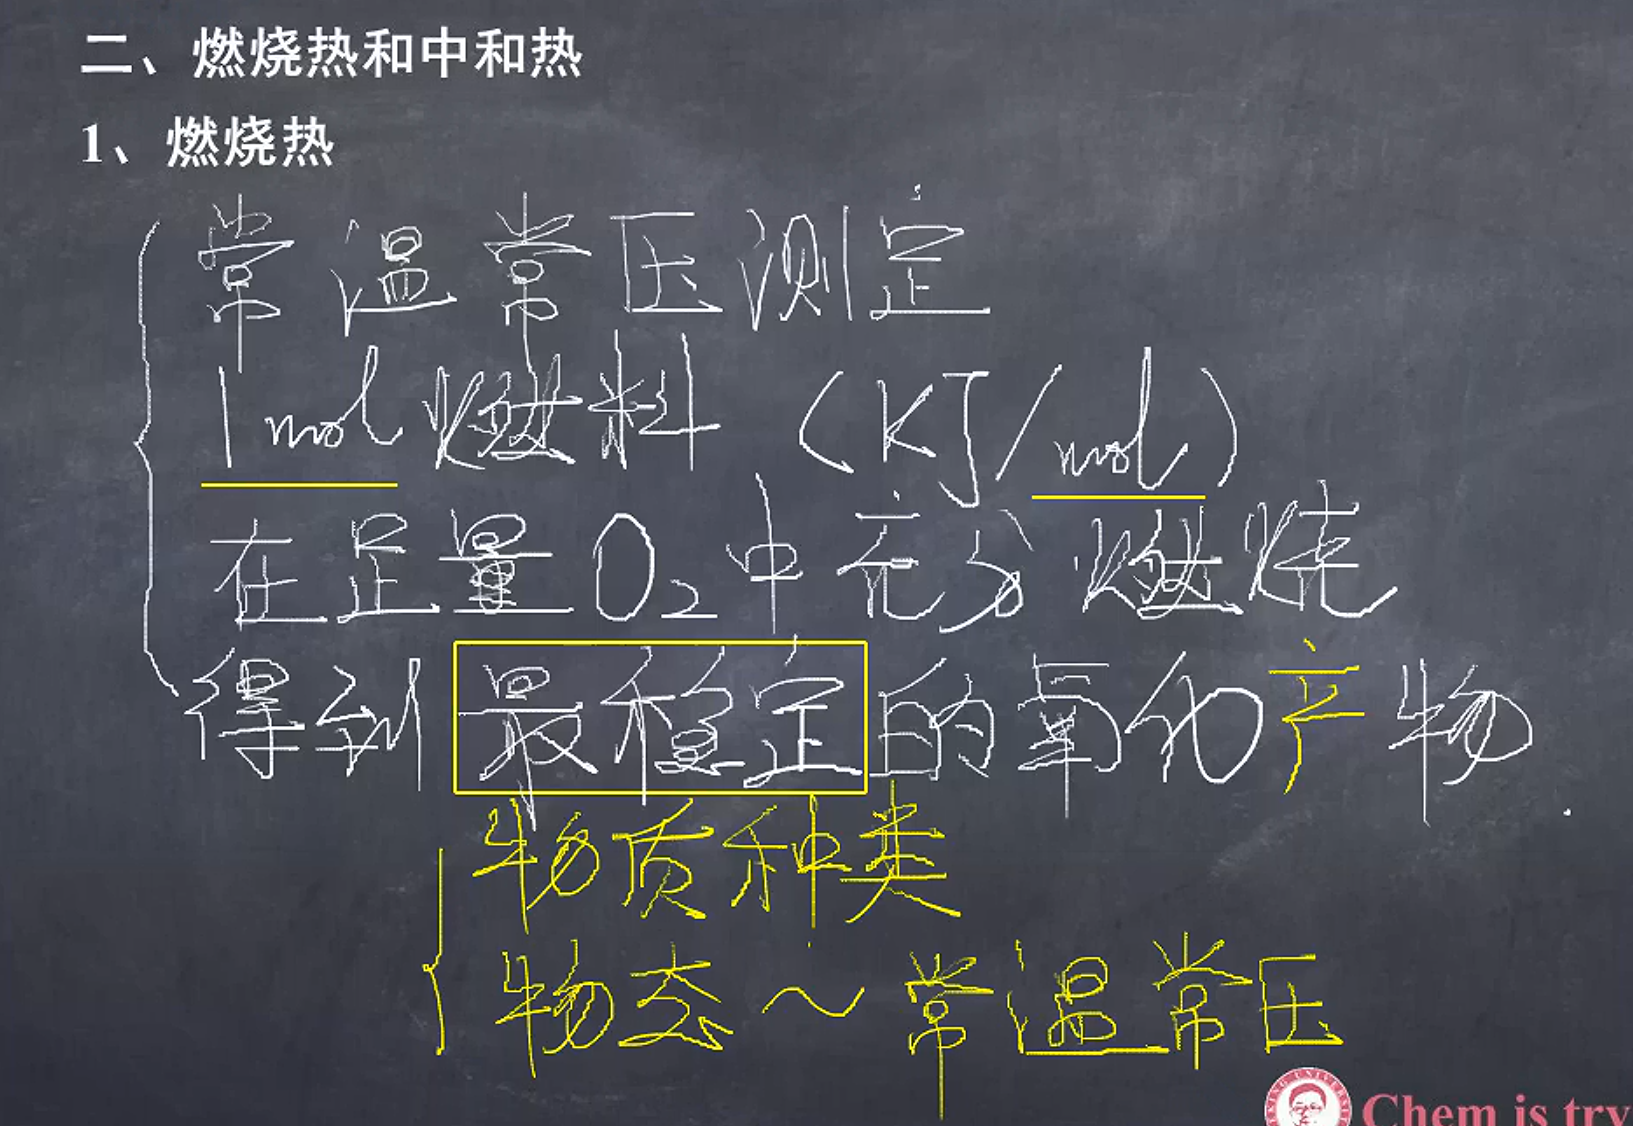 二、燃烧热和中和热
1、燃烧热
常温常压测定
1mol燃料（KJ/mol）
在足量O₂中充分燃烧
得到最稳定的氧化产物
物质种类
物态～常温常压
Chem is try